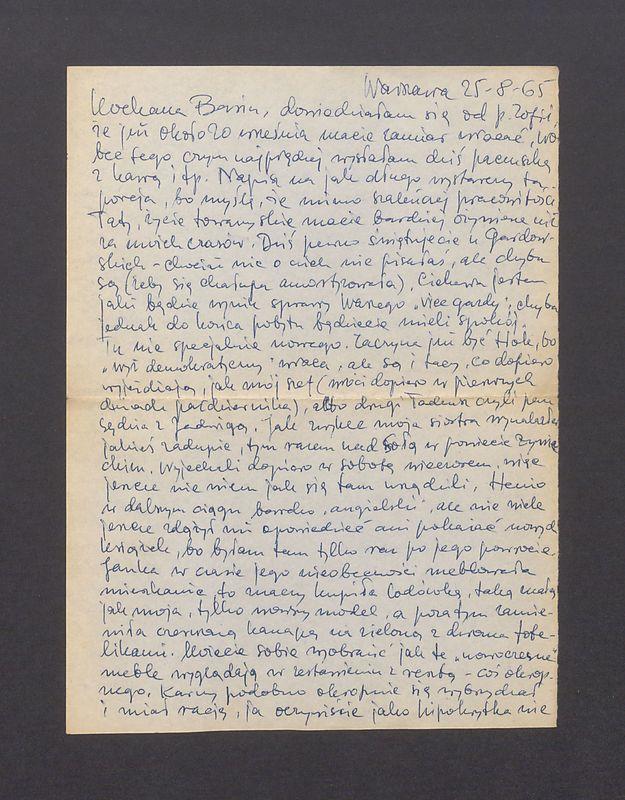 Warszawa 25-8-65
Kochana Basiu, dowiedziałam się od p. Zofii
że już około 20 września macie zamiar wracać, wo-
bec tego czym najprędzej wysłałam dziś paczuszkę
z kawą i tp. Napisz na jak długo wystarczy ta
porcja, bo myślę, że mimo szalonej pracowitości
Taty, życie towarzyskie macie bardziej ożywione niż
za moich czasów. Dziś pewno świętujecie u Gardow-
skich - chociaż nic o nich nie pisałaś, ale chyba
są (żeby się chałupa amortyzowała). Ciekawa jestem
jaki będzie wynik sprawy Waszego "vice gazdy", chyba
jednak do końca pobytu będziecie mieli spokój.
Tu nic specjalnie nowego. Zaczyna już być tłok, bo
"wyż demokratyczny" wraca, ale są i tacy, co dopiero
wyjeżdżają, jak mój szef (wróci dopiero w pierwszych
dniach października), albo drugi Tadeusz czyli pan
sędzia z Jadwigą. Jak zwykle moja siostra wynalazła
jakieś zadupie, tym razem nad Sołą w powiecie żywie-
ckim. Wyjechali dopiero w sobotę wieczorem, więc
jeszcze nie wiem jak się tam urządzili. Henio
w dalszym ciągu bardzo "angielski", ale nie wiele
jeszcze zdążył mi opowiedzieć ani pokazać nowych
książek, bo byłam tam tylko raz po jego powrocie.
Janka w czasie jego nieobecności meblowała
mieszkanie, to znaczy kupiła lodówkę, taką małą
jak moja, tylko nowszy model, a poza tym zamie-
niła czerwoną kanapę na zieloną z dwoma fote-
likami. Możecie sobie wyobrazić jak te "nowoczesne"
meble wyglądają w zestawieniu z resztą - coś okrop-
nego. Karny podobno okropnie się wybrzydzał
i miał rację, ja oczywiście jako hipokrytka nie